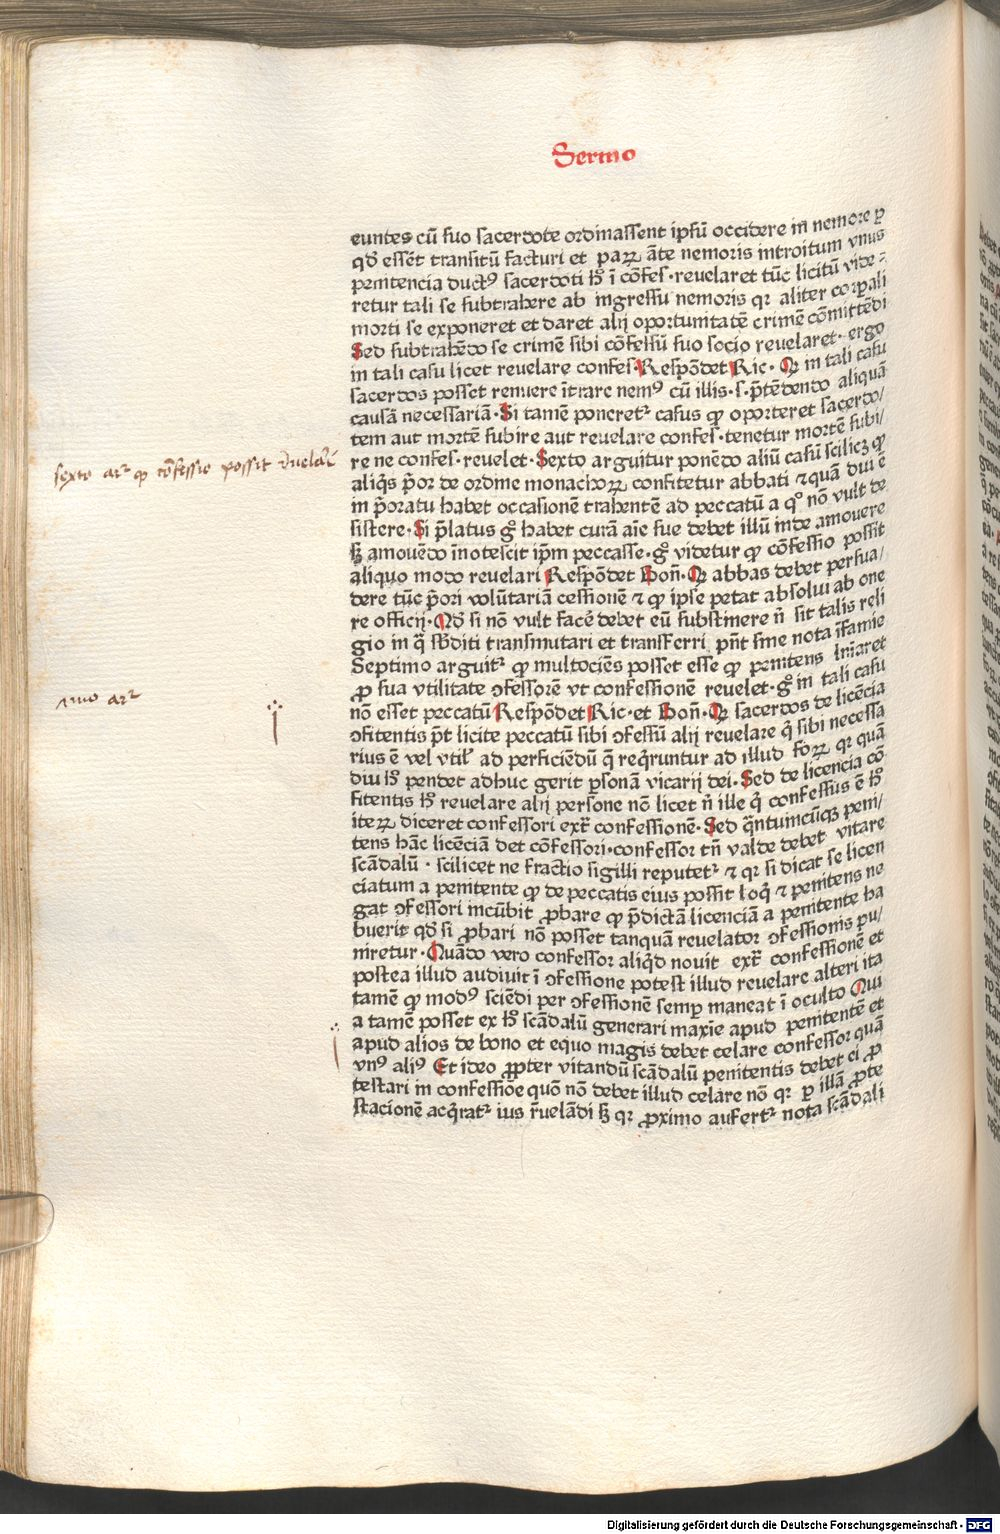 Sermo
euntes cū suo sacerdote ordinassent ipsū occidere in nemore ꝑ
qd̄ essēt transitū facturi et paꝝ āte nemoris introitum vnus
penitencia ductꝰ sacerdoti h̄ ī cōfes·revelaret tūc licitū vide⸗
retur tali se subtrahere ab ingressu nemoris qꝛ aliter corꝑali
morti se exponeret et daret alij oportunitatē crimē cōmittēdi
Sed subtrahēdo se crimē sibi cōfessū suo socio revelaret· ergo
in tali casu licet revelare confes·Respōdet Ric· Qꝫ in tali casu
sacerdos posset renuere ītrare nemꝰ cū illis·s·p̄tēdendo aliquā
causā necessariā·Si tamē poneretᷣ casus ꝙ oporteret sacerdo/
tem aut mortē subire aut revelare confes·tenetur mortē subi/
re ne confes·revelet·Sexto arguitur ponēdo aliū casū scilicꝫ ꝙ
sexto arᷣ ꝙ cōfessio possit r̄uelari
aliq̄s p̄or de ordine monachoꝝ confitetur abbati ꝛ quā diu ē
in p̄oratu habet occasionē trahentē ad peccatū a qͦ nō vult de
sistere·Si p̄latus gͦ habet curā aīe sue debet illū inde amouere
sꝫ amouēdo īnotescit ip̄m peccasse·gͦ videtur ꝙ cōfessio possit
aliquo modo revelari Respōdet Bon̄·Qꝫ abbas debet persua/
dere tūc p̄ori volūtariā cessionē ꝛ ꝙ ipse petat absolui ab one
re officij·Qd̄ si nō vult facē debet eū substinere n̄ sit talis reli
gio in q̄ sb̄diti transmutari et transferri pn̄t sine nota īfamie
Septimo arguitᷣ ꝙ multociēs posset esse ꝙ penitens lniaret
ꝓ sua vtilitate ꝯfessorē vt confessionē revelet·gͦ in tali casu
nō esset peccatū Respōdet Ric·et Bon̄·Qꝫ sacerdos de licēcia
ꝯfitentis p̄t licite peccatū sibi ꝯfessū alij revelare q̄ sibi necessa
rius ē vel vtil̄ ad perficiēdū q̄ req̄runtur ad illud foꝝ qꝛ quā
diu h̄ pendet adhuc gerit ꝑsonā vicarij dei·Sed de licencia cō
fitentis h̄ revelare alij persone nō licet n̄ ille q̄ confessus ē h̄
iteꝝ diceret confessori ext̄ confessionē·Sed q̄ntuincūqꝫ peni/
tens hāc licēciā det cōfessori·confessor tn̄ valde debet vitare
scādalū · scilicet ne fractio sigilli reputetᷣ ꝛ qꝛ si dicat se licen
ciatum a penitente ꝙ de peccatis eius possit loq̄ ꝛ penitens ne
gat ꝯfessori incūbit ꝓbare ꝙ p̄dictā licenciā a penitente ha
buerit qd̄ si ꝓbari nō posset tanquā reuelator ꝯfessionis pu/
niretur·Quādo vero confessor aliq̄d novit ext̄ confessionē et
postea illud audiuit ī ꝯfessione potest illud reuelare alteri ita
tamē ꝙ modꝰ sciēdi per ꝯfessionē semꝑ maneat ī oculto Qui
a tamē posset ex h̄ scādalū generari maxīe apud penitentē et
apud alios de bono et equo magis debet celare confessor quā
vnꝰ aliꝰ Et ideo ꝓpter vitandū scādalū penitentis debet ei ꝓ
testari in confessiōe quō nō debet illud celare nō qꝛ ꝑ illā ꝓte
stacionē acq̄ratᷣ ius r̄uelādi sꝫ qꝛ ꝓximo aufertᷣ nota scādali